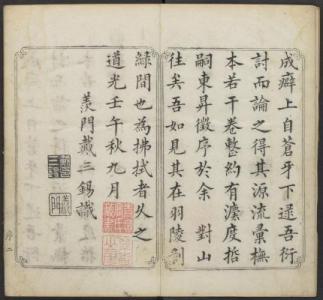 成癖上自蒼牙下逮吾衍
討而論之得其源流彙橅
本若干卷整約有濃度拞
嗣東昇徵序於余 對山
往矣吾如見其在羽陵
緑間也為拂拭者久之
道光壬午秋九月
羨門戴三錫識
序二